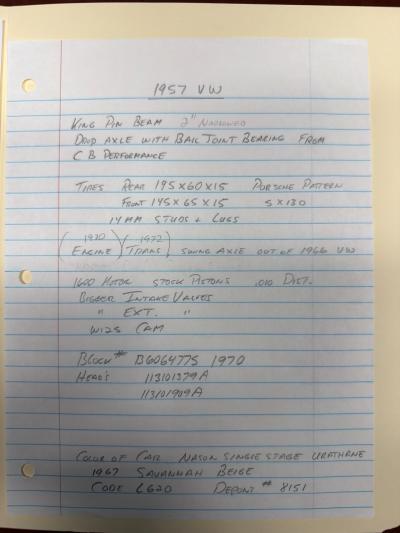 1957 VW
KING PIN BEAM 2" NARROWED
DROP AXLE WITH BALL JOINT BEARING FROM
C B PERFORMANCE
TIRES REAR 195X60X15 PORSCHE PATTERN
FRONT 145X65X15 5X130
14MM STUDS + LUGS
(1970 ENGINE) (1972 TRANS) SWING AXLE OUT OF 1966 VW
1600 MOTOR STOCK PISTONS .010 DIST.
BIGGER INTAKE VALVES
" EXT. "
W125 CAM
BLOCK # B6064775 1970
HEAD'S 113101379A
113101909A
COLOR OF CAR NASON SINGLE STAGE URATHANE
1967 SAVANNAH BEIGE
CODE L620 DEPONT # 8151